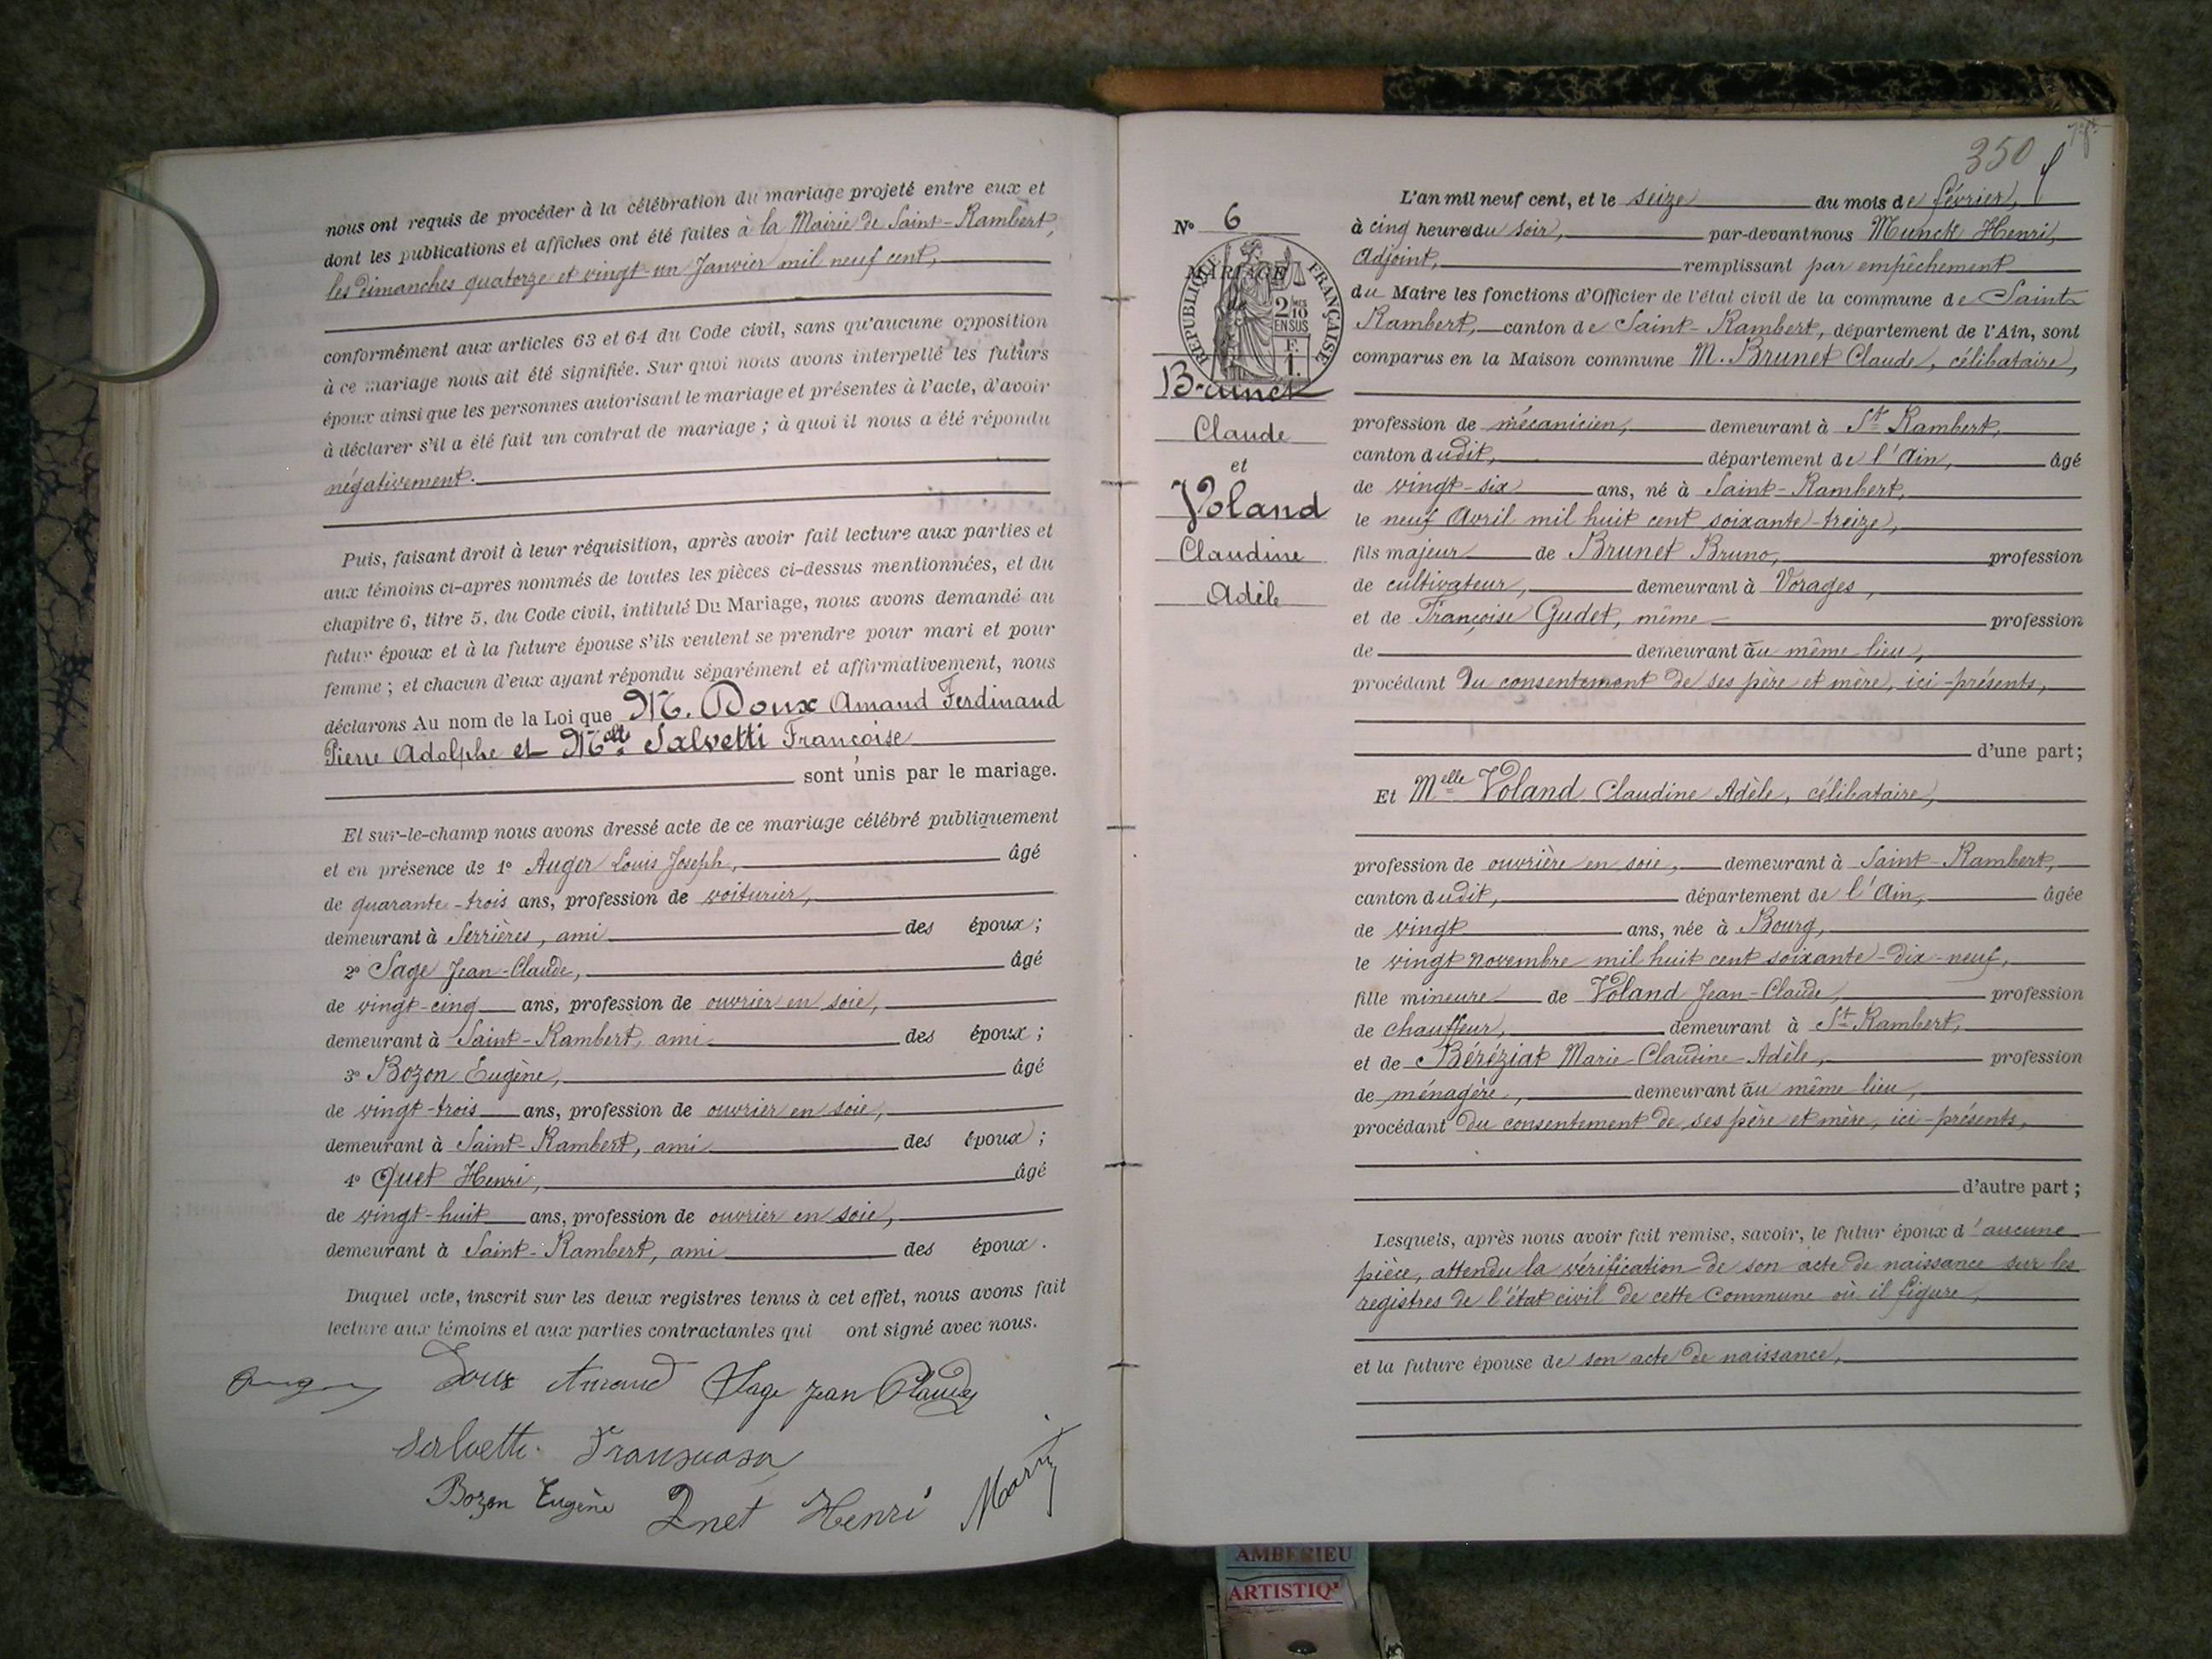 nous ont requis de procéder à la célébration du mariage projeté entre eux et
dont les publications et affiches ont été faites à la Mairie de Saint-Rambert,
les dimanches quatorze et vingt-un Janvier mil neuf cent,
conformément aux articles 63 et 64 du Code civil, sans qu'aucune opposition
à ce mariage nous ait été signifiée. Sur quoi nous avons interpellé les futurs
époux ainsi que les personnes autorisant le mariage et présentes à l'acte, d'avoir
à déclarer s'il a été fait un contrat de mariage ; à quoi il nous a été répondu
négativement.
Puis, faisant droit à leur réquisition, après avoir fait lecture aux parties et
aux témoins ci-après nommés de toutes les pièces ci-dessus mentionnées, et du
chapitre 6, titre 5, du Code civil, intitulé Du Mariage, nous avons demandé au
futur époux et à la future épouse s'ils veulent se prendre pour mari et pour
femme ; et chacun d'eux ayant répondu séparément et affirmativement, nous
déclarons Au nom de la Loi que M. Doux Amand Ferdinand
Pierre Adolphe et Melle Salvetti Françoise
sont unis par le mariage.
Et sur-le-champ nous avons dressé acte de ce mariage célébré publiquement
et en présence de 1° Auger Louis Joseph, âgé
de quarante-trois ans, profession de voiturier,
demeurant à Serrières, ami des époux ;
2° Sage Jean-Claude, âgé
de vingt-cinq ans, profession de ouvrier en soie,
demeurant à Saint-Rambert, ami des époux ;
3° Bozon Eugène, âgé
de vingt-trois ans, profession de ouvrier en soie,
demeurant à Saint-Rambert, ami des époux ;
4° Quet Henri, âgé
de vingt-huit ans, profession de ouvrier en soie,
demeurant à Saint-Rambert, ami des époux.
Duquel acte, inscrit sur les deux registres tenus à cet effet, nous avons fait
lecture aux témoins et aux parties contractantes qui ont signé avec nous.
Doux Amand Sage Jean Claude
Bozon Eugène Quet Henri
350
N° 6
MARIAGE
RÉPUBLIQUE FRANÇAISE
2 MES
10
EN SUS
F.
1.
Brunet
Claude
et
Voland
Claudine
Adèle
L'an mil neuf cent, et le seize du mois de février,
à cinq heures du soir, par-devant nous Munck Henri,
Adjoint, remplissant par empêchement
du Maire les fonctions d'Officier de l'état civil de la commune de Saint-
Rambert, canton de Saint-Rambert, département de l'Ain, sont
comparus en la Maison commune M. Brunet Claude, célibataire,
profession de mécanicien, demeurant à St Rambert,
canton dudit, département de l'Ain, âgé
de vingt-six ans, né à Saint-Rambert,
le neuf Avril mil huit cent soixante-treize,
fils majeur de Brunet Bruno, profession
de cultivateur, demeurant à Vorages,
et de Françoise Gudet, même profession
de demeurant au même lieu,
procédant du consentement de ses père et mère, ici-présents,
d'une part ;
Et Melle Voland Claudine Adèle, célibataire,
profession de ouvrière en soie, demeurant à Saint-Rambert,
canton dudit, département de l'Ain, âgée
de vingt ans, née à Bourg,
le vingt novembre mil huit cent soixante-dix-neuf,
fille mineure de Voland Jean-Claude, profession
de chauffeur, demeurant à St Rambert,
et de Béréziat Marie-Claudine-Adèle, profession
de ménagère, demeurant au même lieu,
procédant du consentement de ses père et mère, ici-présents,
d'autre part ;
Lesquels, après nous avoir fait remise, savoir, le futur époux d'aucune
pièce, attendu la vérification de son acte de naissance sur les
registres de l'état civil de cette Commune où il figure,
et la future épouse de son acte de naissance,
AMBERIEU
ARTISTIQ